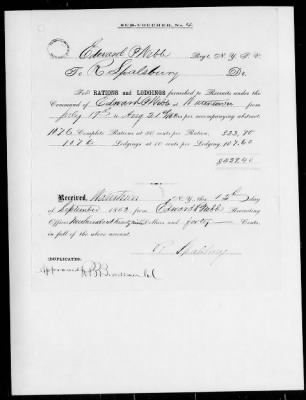 SUB-VOUCHER, No. 4
Edward P Webb Regt. N. Y. S. V.
To R Spalsbury Dr.
For RATIONS and LODGINGS furnished to Recruits under the
Command of Edward P Webb at Watertown from
July 17th to Aug 21st 1862 per accompanying abstract
1076 Complete Rations at 30 cents per Ration, 322,80
1076 Lodgings at 10 cents per Lodging, 107,60
Received, Watertown N. Y., this 12th day
of September 1862 from Edward P Webb Recruiting
Officer hundred and Dollars and forty Cents,
in full of the above account.
R Spalsbury
DUPLICATES.
Approved